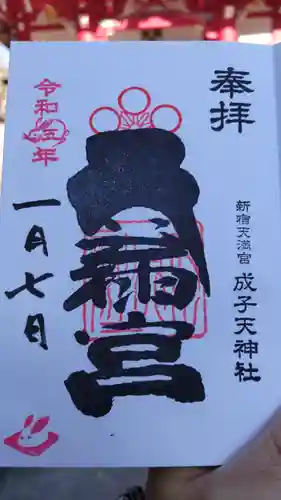 奉拝
新宿天満宮 成子天神社
天満宮
令和五年
一月七日